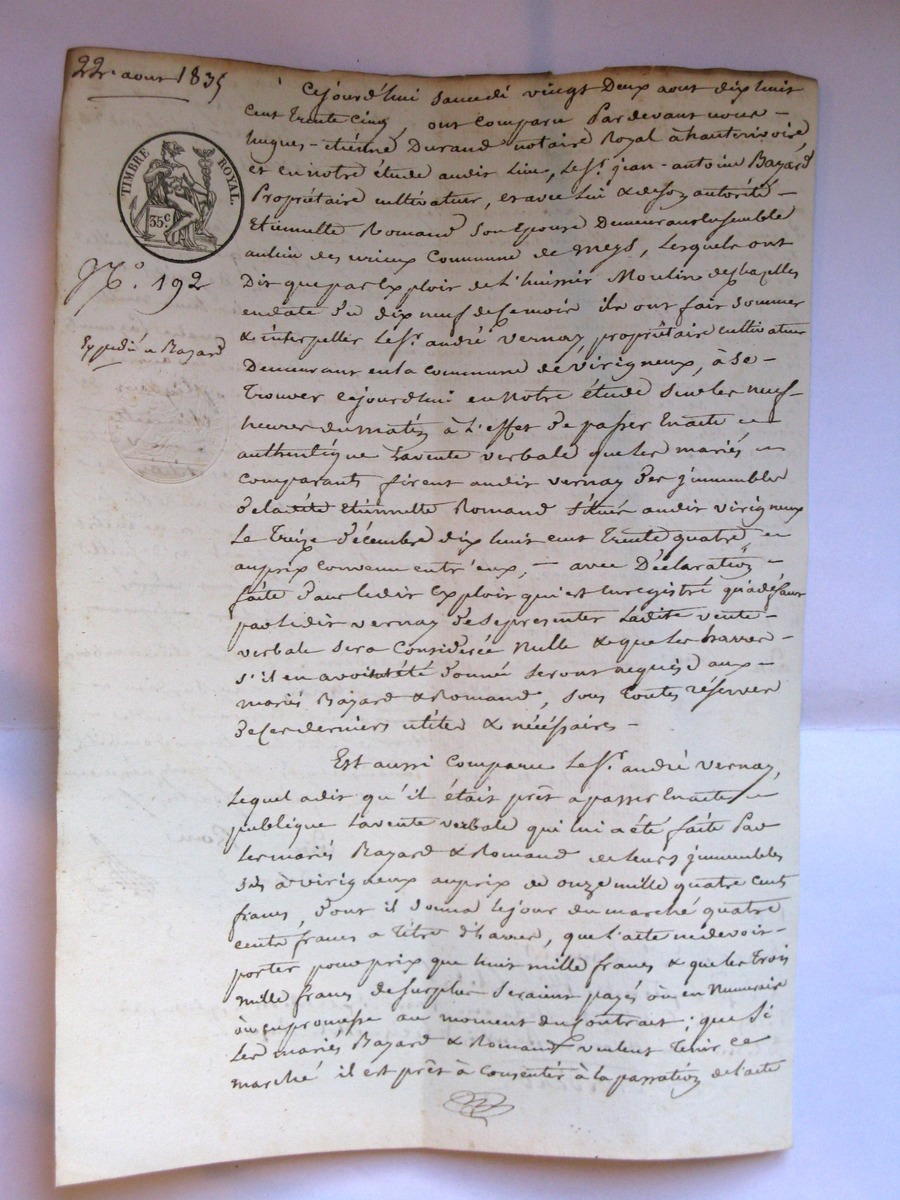 22. aout 1835
TIMBRE ROYAL.
35 c.
N.° 192
Expédié a Bazard
Cejourd'hui samedi vingt Deux aout dix huit
Cent trente Cinq ont Comparu Pardevant nous -
hugues-etienne Durand notaire Royal à hauterivoire,
et en notre étude audit lieu, le Sr. jean-antoine Bazard
Propriétaire cultivateur, et avec Lui & de son autorité -
Etiennette Romand Son Epouse Demeurant Ensemble
au lieu des vieux Commune de meys, Lesquels ont
Dit que par Exploit de L'huissier Moulin de chazelles
en date du dix neuf de ce mois ils ont fait Sommer
& interpeller le Sr. andré Vernay propriétaire cultivateur
Demeurant en la Commune de Virigneux, à se -
Trouver cejourd'hui en notre étude sur les neuf
heures du matin à L'effet de passer En acte
authentique la vente verbale que les mariés
Comparants firent audit vernay des jmmeubles
de la dite Etiennette Romand Situés audit virigneux
Le Treize décembre dix huit cent Trente quatre
au prix Convenu entr'eux, - avec Déclaration -
faite dans ledit Exploit qui est Enregistré qu'à défaut
par ledit vernay de se présenter Ladite vente -
verbale sera Considérée nulle & que les harres -
s'il en avoit été donné seront acquis aux -
mariés Bazard & Romand, sous toutes réserves
de ces derniers utiles & nécéssaires -
Est aussi Comparu le Sr. andré vernay,
Lequel a dit qu'il était prêt a passer En acte
publique La vente verbale qui lui a été faite Par
les mariés Bazard & Romand de leurs jmmeubles
Sis à virigneux au prix de onze mille quatre cents
francs, dont il donna le jour du marché quatre
cents francs a titre d'harres, que l'acte ne devoit -
porter pour prix que huit mille francs & que les Trois
mille francs de surplus Seraient payés ou en Numéraire
ou en promesse au moment du Contrat; que Si
Les mariés Bazard & Romand veulent tenir ce
marché il est prêt à Consentir à la passation de l'acte